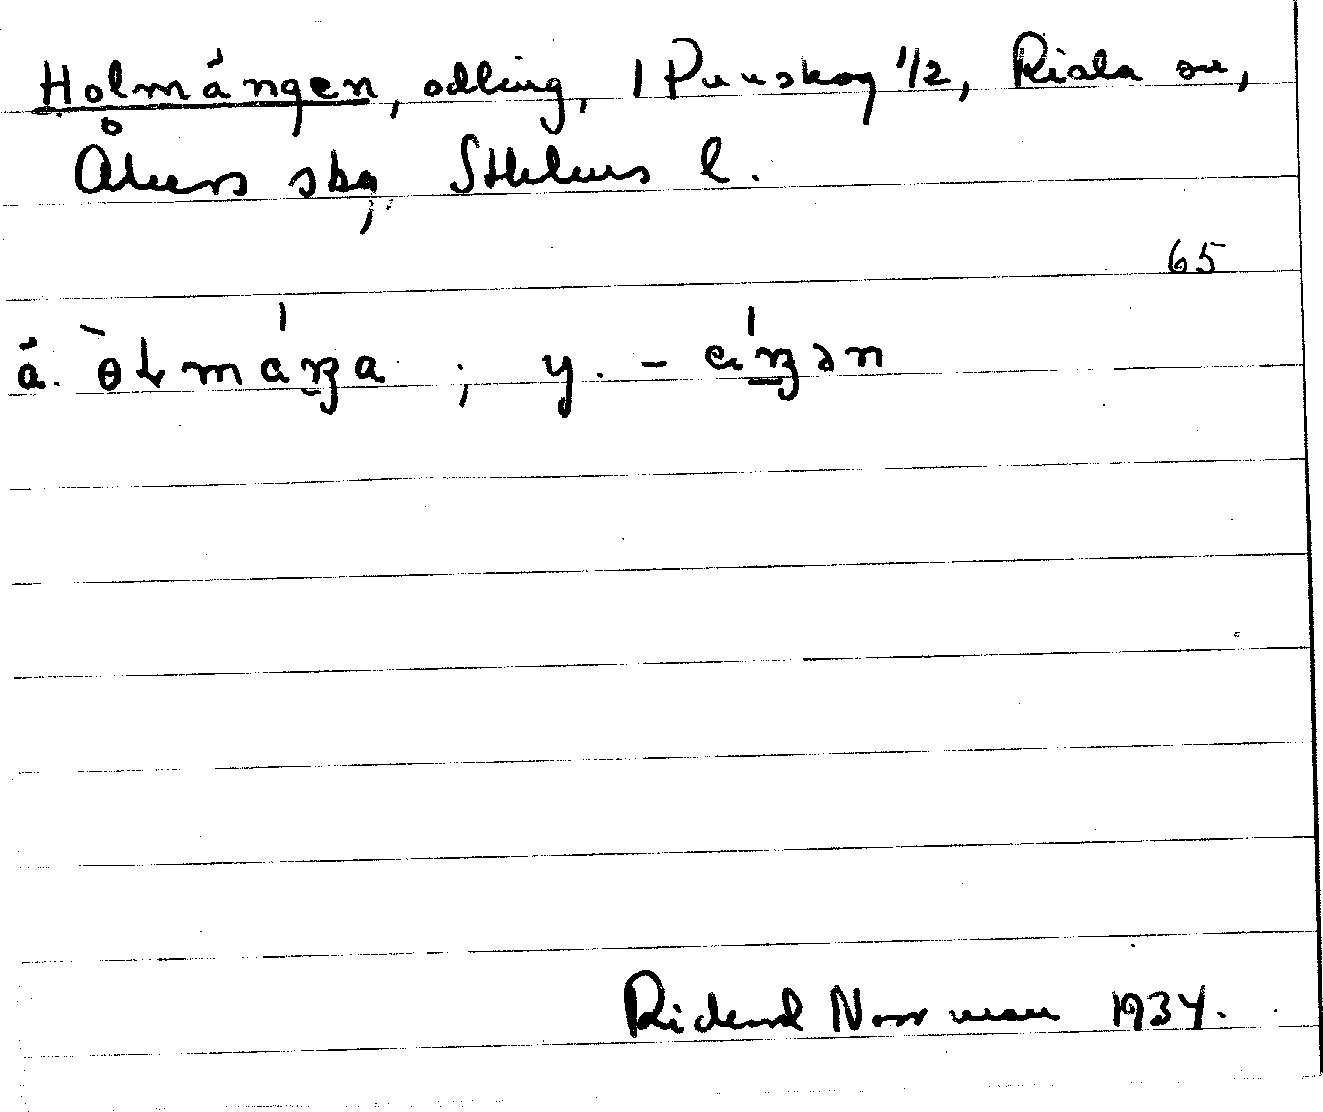 Holmängen, odling, 1 Punskog 1/2, Riala sn,
Åkers skg, Sthlms l.
65
ä. òɫmáŋa ; y. - áŋən
Rickard Norrman 1934.